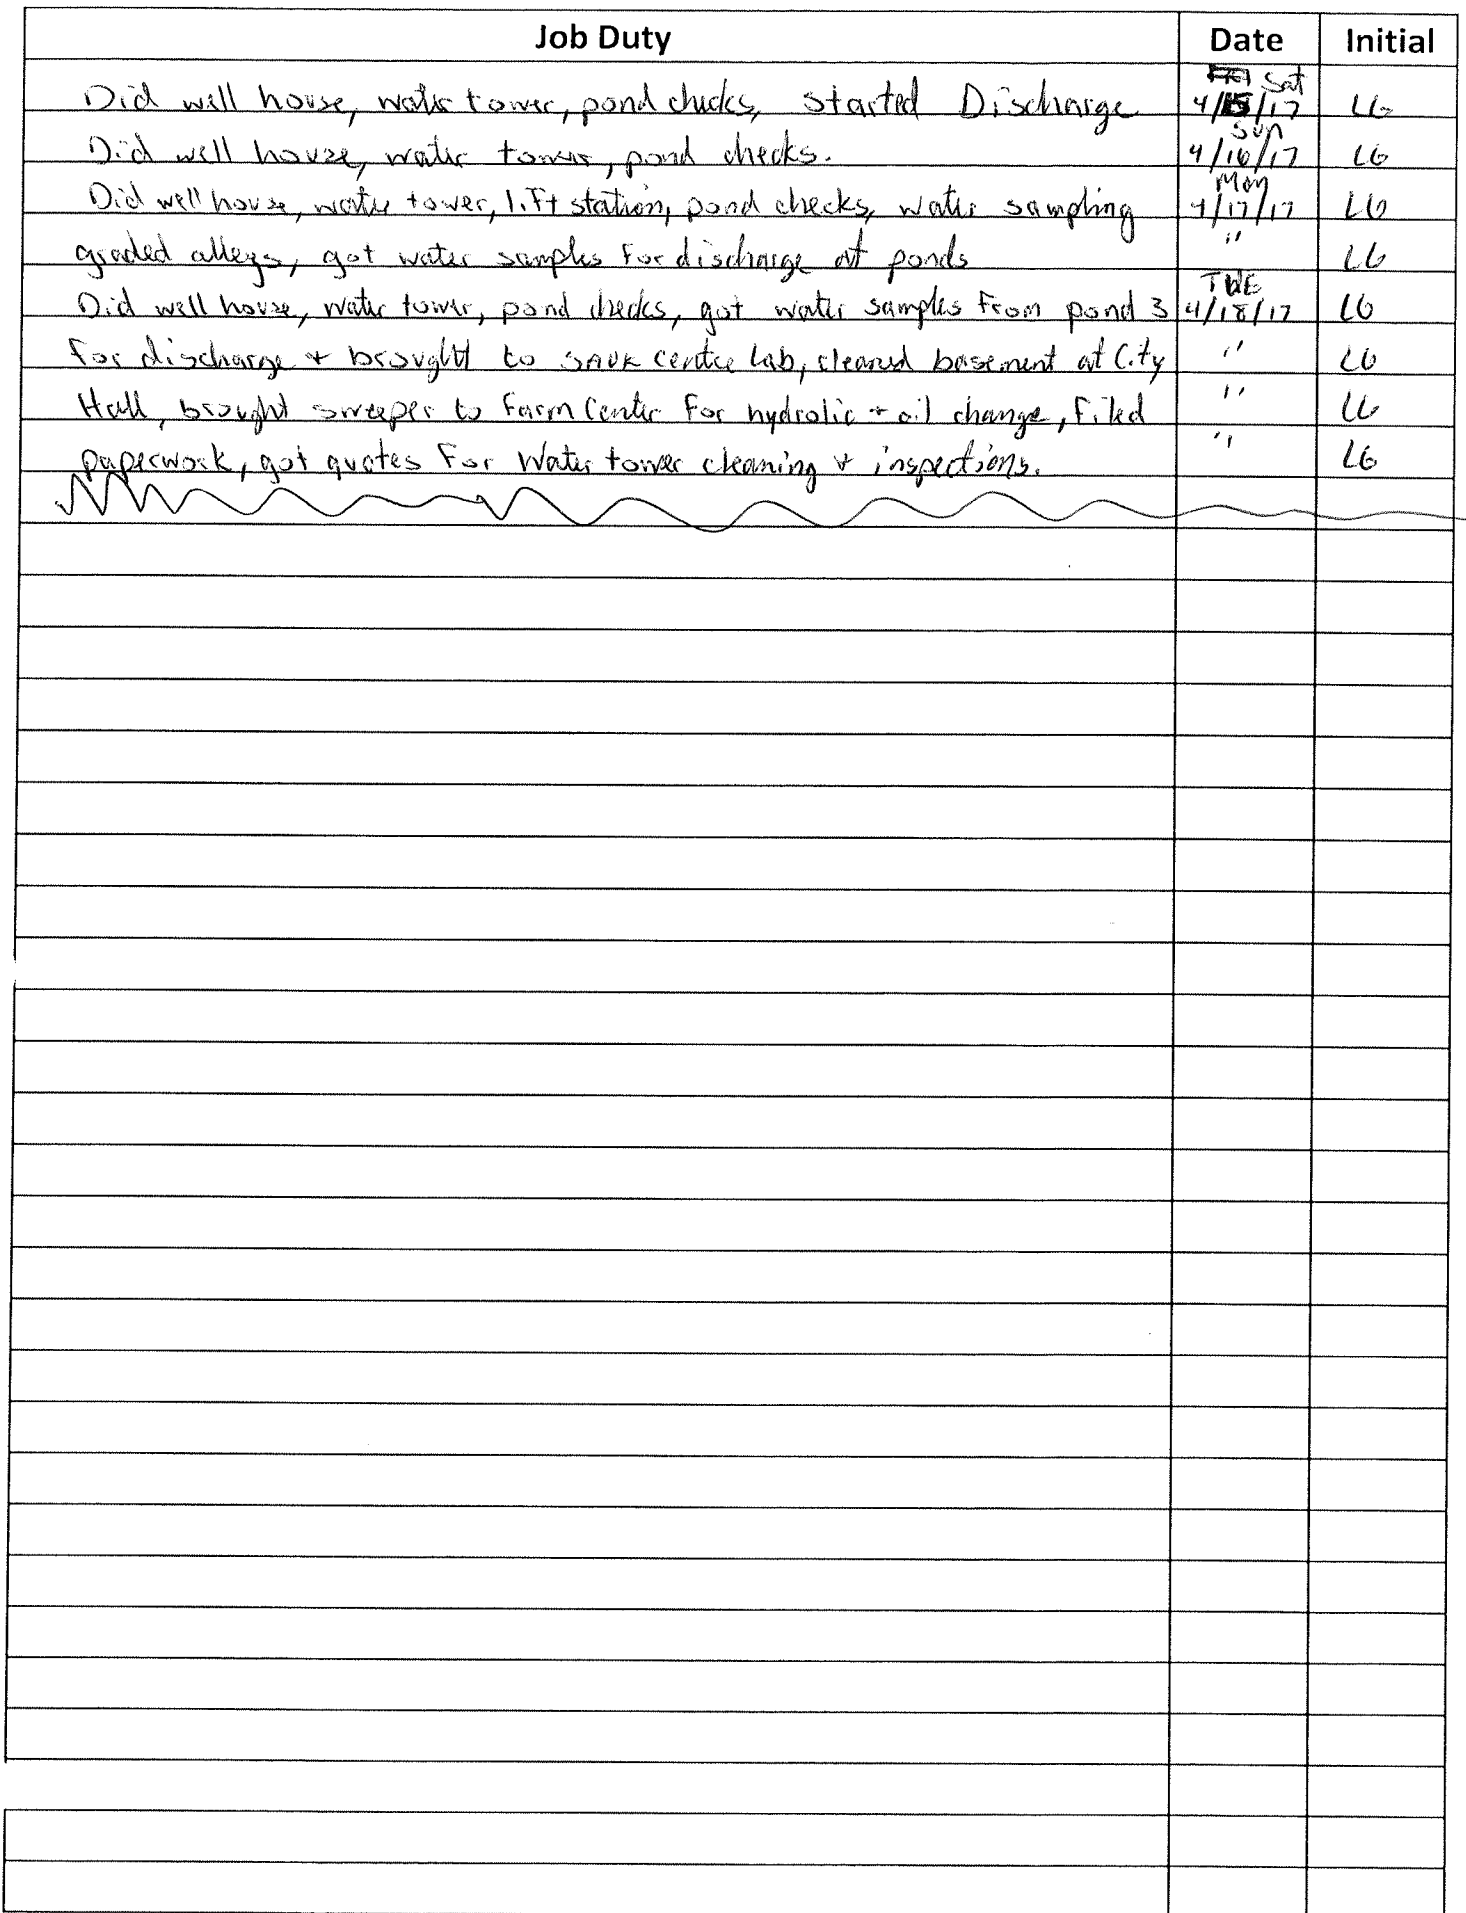 Job Duty Date Initial
Sat
Did well house, water tower, pond checks, started Discharge 4/15/17 LG
Sun
Did well house, water tower, pond checks. 4/16/17 LG
Mon
Did well house, water tower, lift station, pond checks, water sampling 4/17/17 LG
graded alleys, got water samples for discharge at ponds " LG
TUE
Did well house, water tower, pond checks, got water samples from pond 3 4/18/17 LG
for discharge + brought to SAUK Centre Lab, cleaned basement at City " LG
Hall, brought sweeper to Farm Center for hydrolic + oil change, filed " LG
paperwork, got quotes for Water tower cleaning + inspections. " LG